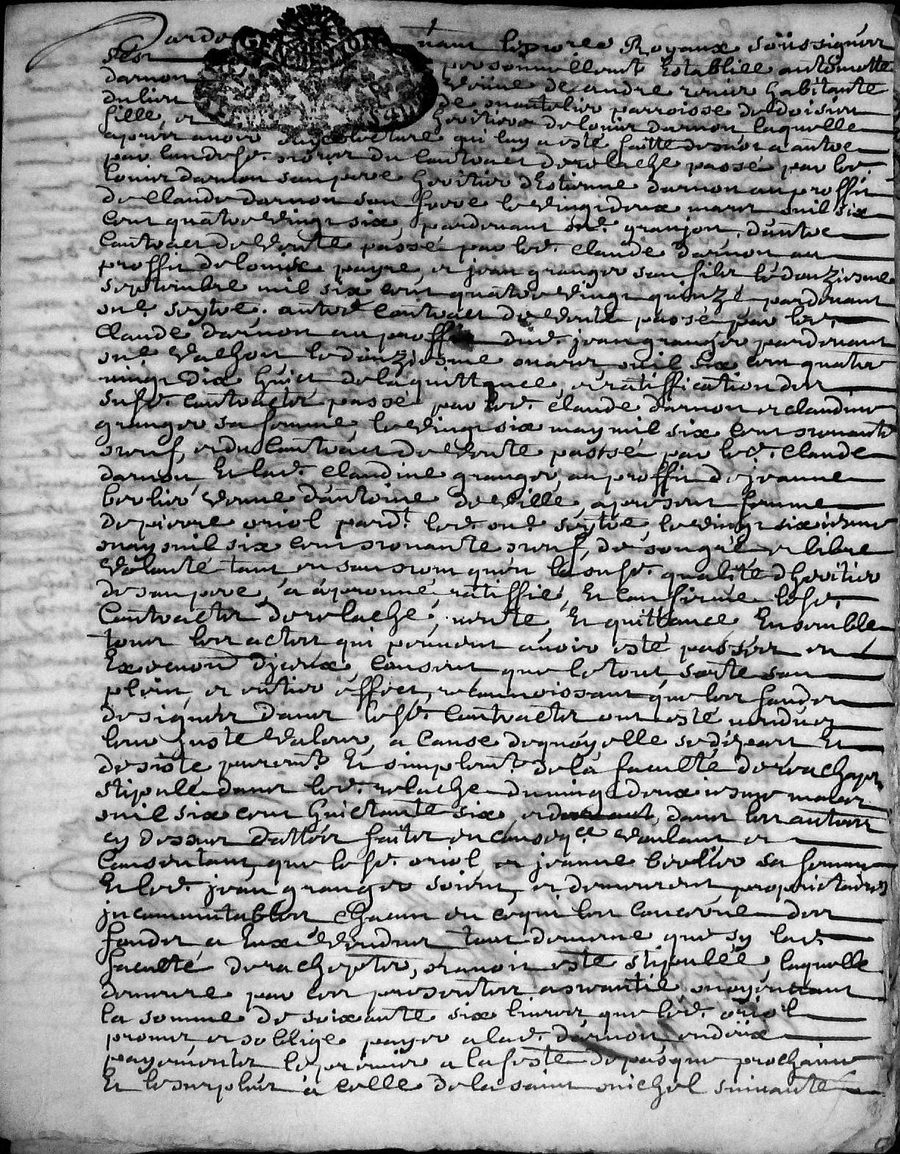 Pardevant le notre Royaux soussigner
s'est personnellemt Establie anthoinette
darnon vefve de andre renier habitante
du lieu de montelier parroisse de doisieu
fille, et heritiere de louis darnon laquelle
apres avoir lecture qui luy a esté faitte de mot a autre
par lundit. notre du Contract de relache passé par led.
louis darnon son pere heritier d'Estienne darnon au proffit
de Claude darnon son frere le vingt deux mars mil six
cent quatre vingt six pardevant me. granjon, d'autre
Contract de vente passé par led. claude darnon au
proffit de louise payre et jean granger son fils le douziesme
septembre mil six cent quatre vingt quinze pardevant
me. seytre. autre Contract de vente passé par led.
Claude darnon au proffit dud. jean granger pardevant
me vachon le douziesme mars mil six cent quatre
vingt dix huict de la quittance, et rattiffication des
susd. Contracts passé par led. claude darnon et claudine
granger sa femme le vingt six may mil six cent nonante
neuf, et du Contract de vente passé par led. Claude
darnon Et lad. claudine granger au proffit de jeanne
berlier vefve d'antoine deville a present femme
de pierre oriol pardt. led. me. seytre le vingt sixiesme
may mil six cent nonante neuf, de son gré et libre
volonté tant en son nom qu'en la susd. qualité d'heritier
de son pere, a approuvé rattiffié, Et confirmé lesd.
Contracts de relache, vente Et quittance Ensemble
tous les actes qui peuvent avoir esté passés en
Execution d'yceux Consent que le tout sorte son
plein et entier effect, reconnoissant que les fonds
designés dans lesd. Contracts ont esté vendus
leur juste valeur, a cause de quoy elle se depart Et
desiste puremt. Et simplemt. de la faculté de rachept
stipulé dans led. relache du vingt deuxiesme mars
mil six cent huictante six et dans les autres
cy dessus d'actes faites en conseqce. voulant et
Consentant que lesd. oriol et jeanne berlier sa femme
Et led. jean granger soient, et demeurent proprietaires
jncommutables chacun en ce qui les concerne des
fonds a Eux vendus tout de mesme que sy lad.
faculté de rachepter, n'avoit esté stipullée laquelle
demeure par les presentes aneantie moyennant
la somme de soixante six livres que led. oriol
promet et s'oblige payer a lad. darnon en deux
payements le premier a la feste de pasque prochaine
Et le surplus a celle de la saint michel suivante